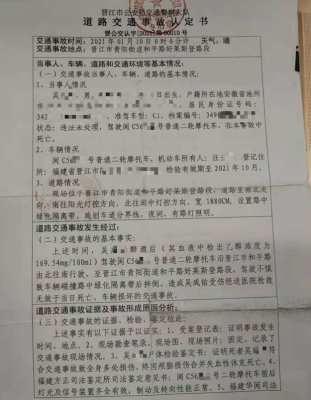 晋江市公安局交通警察大队
道路交通事故认定书
晋公交认字[2021]第00010号
交通事故时间：2021年01月10日0时0分许 天气：晴
交通事故地点：晋江市青阳街道和平路好莱斯登路段
当事人、车辆、道路和交通环境等基本情况：
（一）交通事故当事人、车辆、道路的基本情况
1、当事人情况
吴 ，男， 日出生，户籍所在地安徽省池州
，居民身份证号码：
342 ，准驾车型：C1，档案编号：340
状态：违法未处理，驾驶闽C56 号普通二轮摩托车，在本事故中
死亡。
2、车辆情况
闽C56 号普通二轮摩托车，机动车所有人： ，登记住
所：福建省晋江市 检验有效期至2021年10月。
3、道路情况
现场位于晋江市青阳街道和平路好莱斯登路段，道路呈南北走
向，南往阳光灯控方向，北往 灯控方向，宽1880CM，设置路中
绿化隔离带，施划车道分界线，夜间，有路灯照明。
道路交通事故发生经过：
（二）交通事故的基本事实：
上述时间，吴 醉酒后（吴血液中检出乙醇浓度为
169.54mg/100ml）驾驶闽C56 号普通二轮摩托车沿晋江市和平路
由北往南行驶，至晋江市青阳街道和平路好莱斯登路段，驾驶不慎
致车辆碰撞路中绿化隔离带后摔倒，造成吴 受伤经送医院抢救
无效于当日死亡、车辆损坏的交通事故。
道路交通事故证据及事故形成原因分析：
（三）交通事故的证据、检验、鉴定结论：
上述事实有以下证据予以证实：1、受案登记表：证明事故发生
时间、地点。2、现场勘查笔录、现场图、现场照片：固定、记录了
交通事故现场情况。3、吴 尸体检验鉴定书：证明死者吴 符
合交通事故致全身多处损伤，终因颅脑损伤合并失血性休克死亡。4、
福建方正司法鉴定所司法鉴定意见书：闽C56 号二轮摩托车前后
灯光及信号装置齐全有效，制动及转向性能正常。5、福建华闽司法